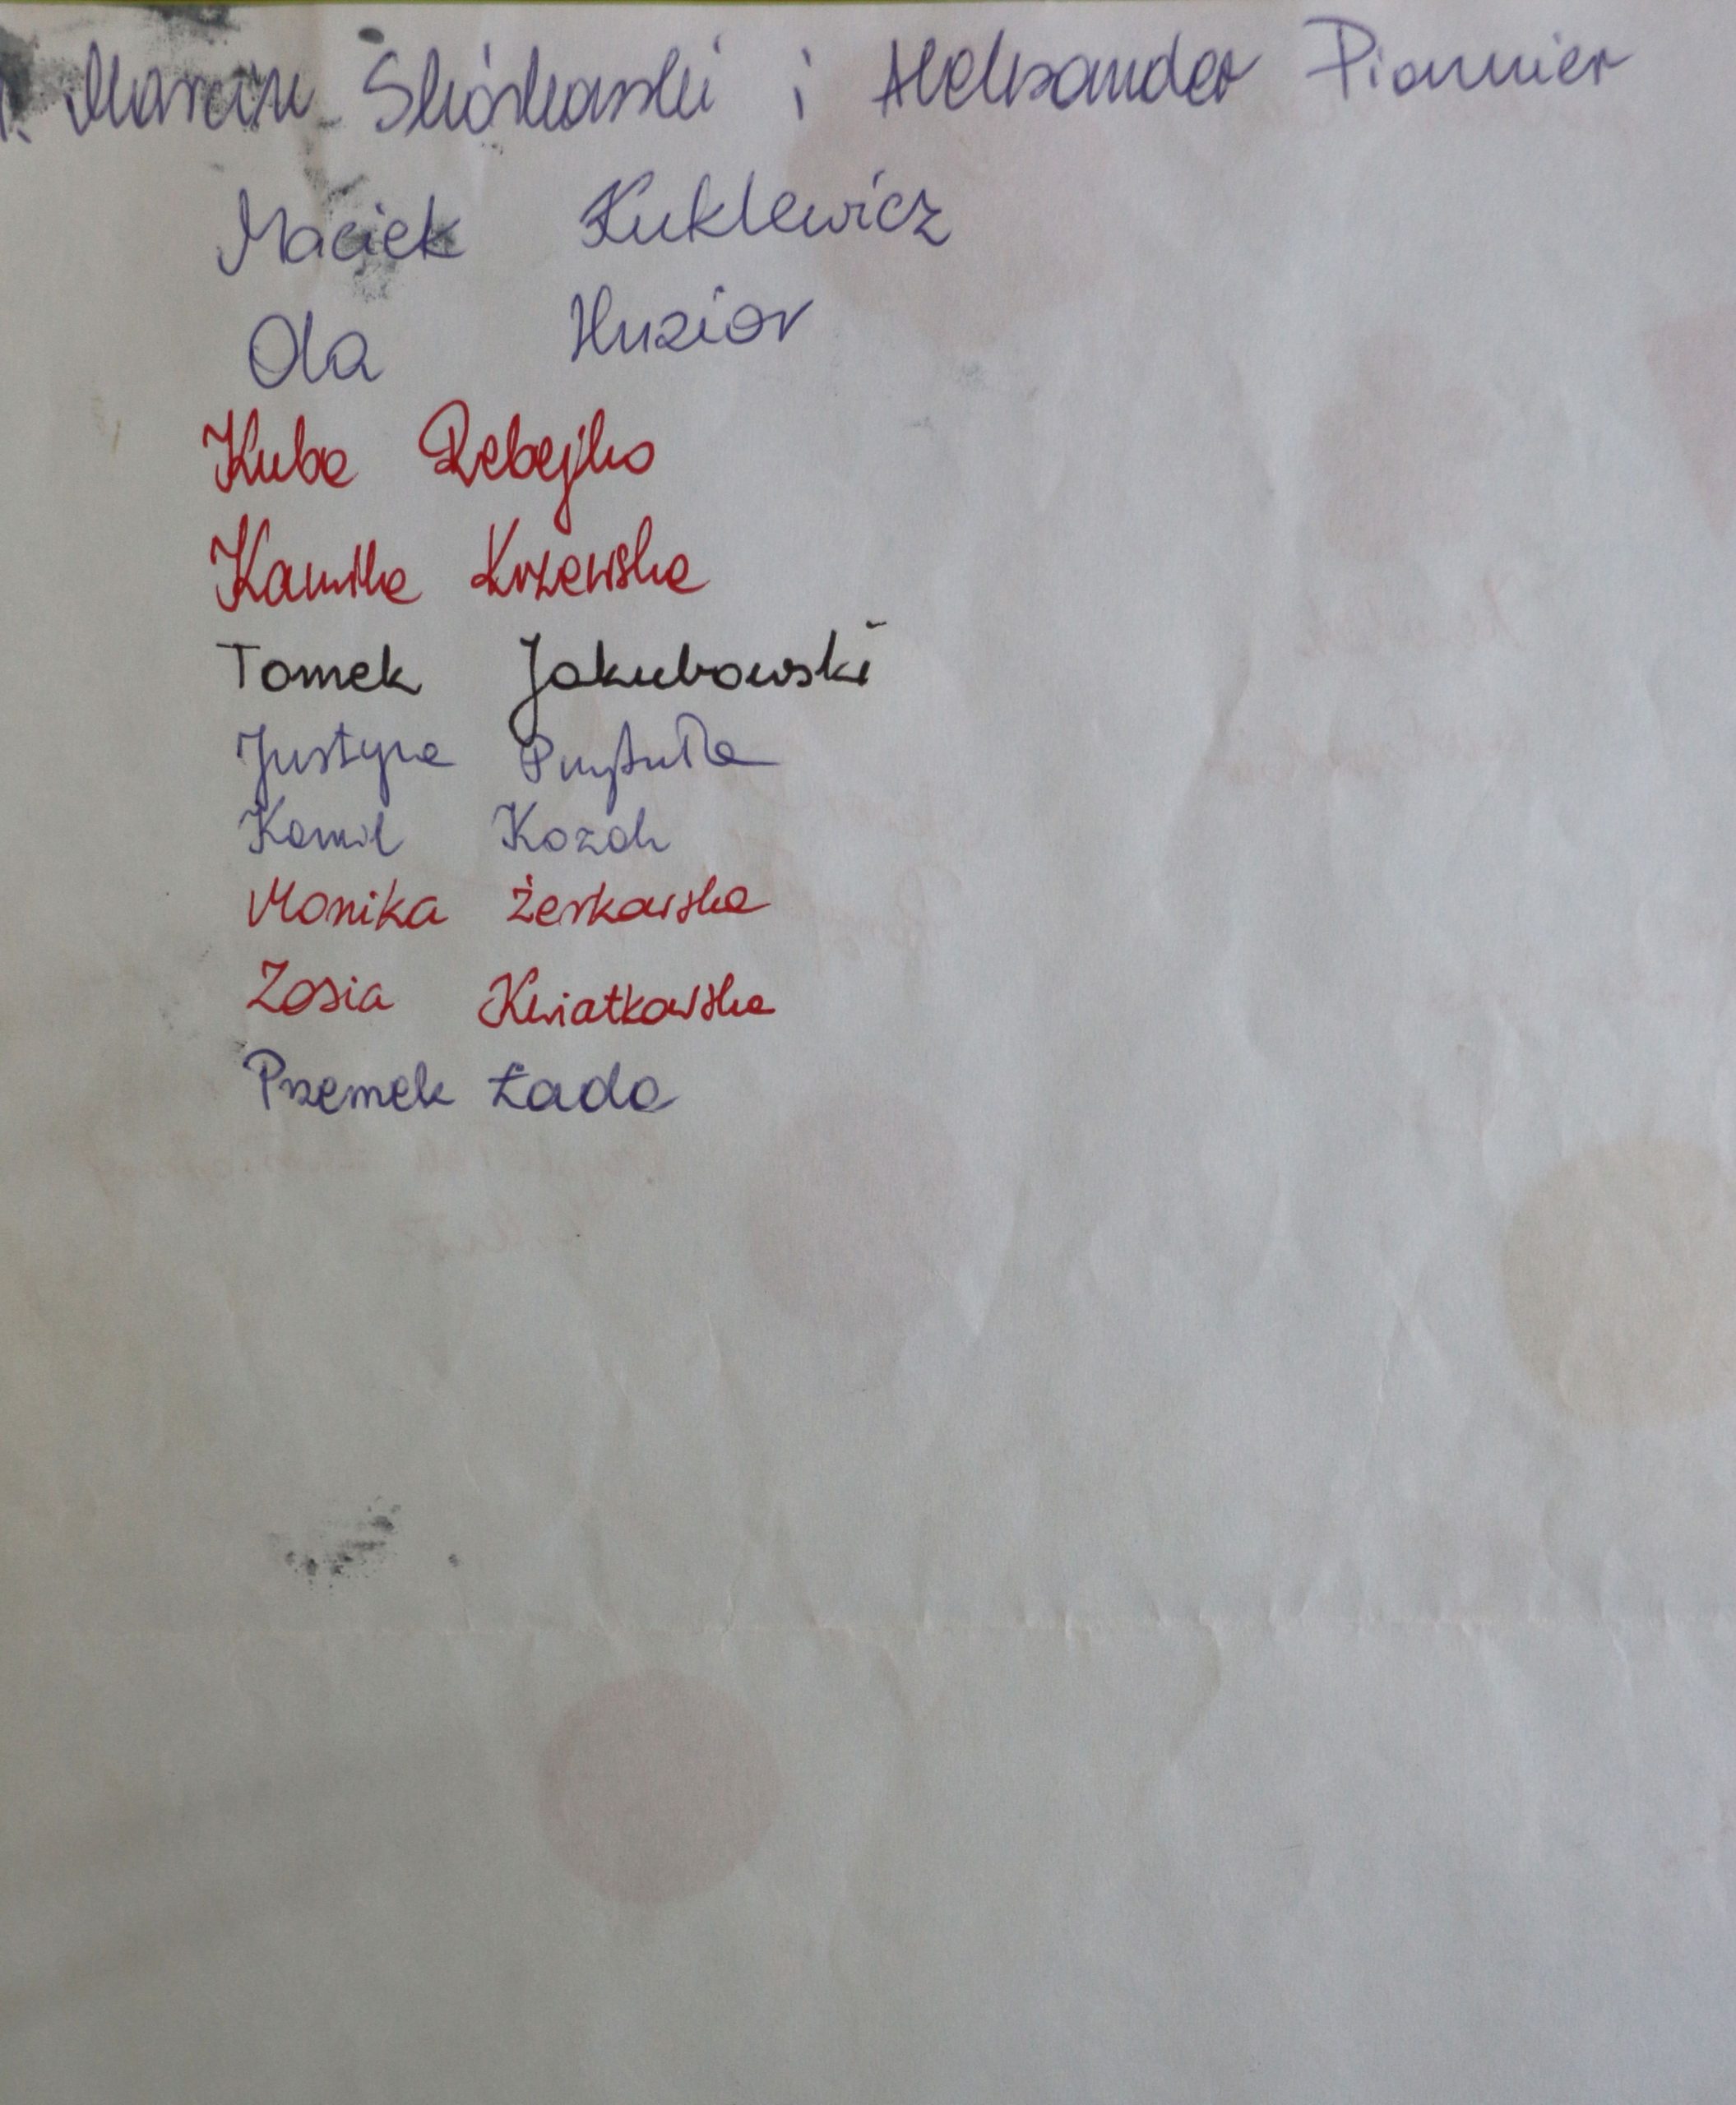 Marcin Skórkowski i Aleksander Pionnier
Maciek Kuklewicz
Ola Huzior
Kuba Rebejko
Kamilla Krzewska
Tomek Jakubowski
Justyna Przytuła
Kamil Kozak
Monika Żerkowska
Zosia Kwiatkowska
Przemek Łada